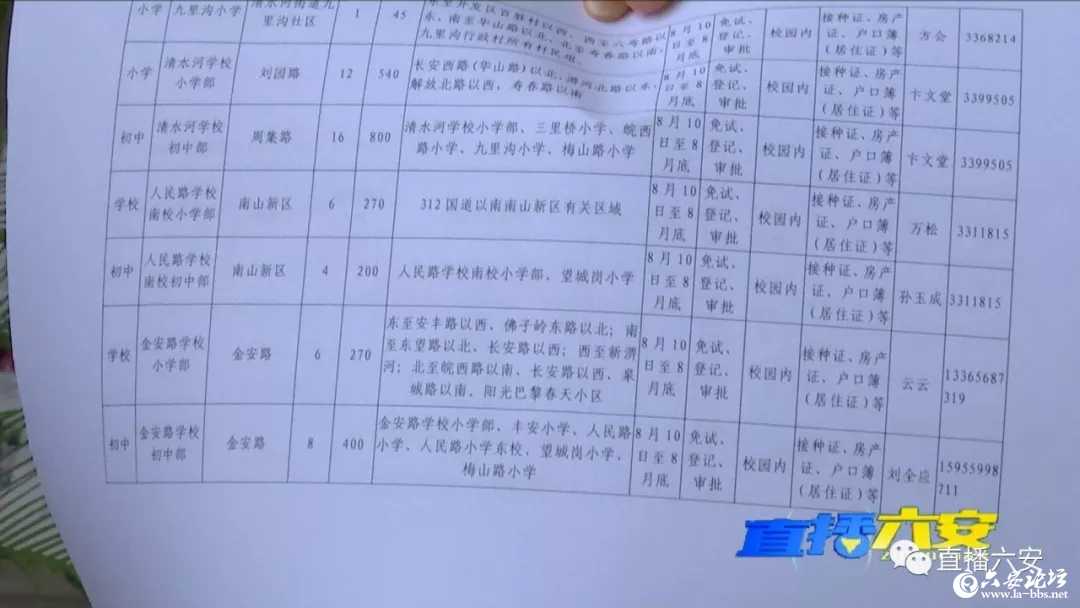 小学 九里沟小学 清水河街道九里沟社区 1 45 东至开发区百胜村以西、西至六寿路以东、南至华山路以北、北至寿春路以南,九里沟行政村所有村民组。 8月10日至8月底 免试、登记、审批 校园内 接种证、房产证、户口簿(居住证)等 方会 3368214
小学 清水河学校小学部 刘园路 12 540 长安西路(华山路)以北、淠河北路以东、解放北路以西,寿春路以南 8月10日至8月底 免试、登记、审批 校园内 接种证、房产证、户口簿(居住证)等 卞文堂 3399505
初中 清水河学校初中部 周集路 16 800 清水河学校小学部、三里桥小学、皖西路小学、九里沟小学、梅山路小学 8月10日至8月底 免试、登记、审批 校园内 接种证、房产证、户口簿(居住证)等 卞文堂 3399505
学校 人民路学校南校小学部 南山新区 6 270 312国道以南南山新区有关区域 8月10日至8月底 免试、登记、审批 校园内 接种证、房产证、户口簿(居住证)等 万松 3311815
初中 人民路学校南校初中部 南山新区 4 200 人民路学校南校小学部、望城岗小学 8月10日至8月底 免试、登记、审批 校园内 接种证、房产证、户口簿(居住证)等 孙玉成 3311815
学校 金安路学校小学部 金安路 6 270 东至安丰路以西、佛子岭东路以北;南至东望路以北、长安路以西;西至新淠河;北至皖西路以南、长安路以西、皋城路以南、阳光巴黎春天小区 8月10日至8月底 免试、登记、审批 校园内 接种证、房产证、户口簿(居住证)等 云云 13365687319
初中 金安路学校初中部 金安路 8 400 金安路学校小学部、丰安小学、人民路小学、人民路小学东校、望城岗小学、梅山路小学 8月10日至8月底 免试、登记、审批 校园内 接种证、房产证、户口簿(居住证)等 刘全应 15955998711
直播六安
直播六安
六安论坛
www.la-bbs.net